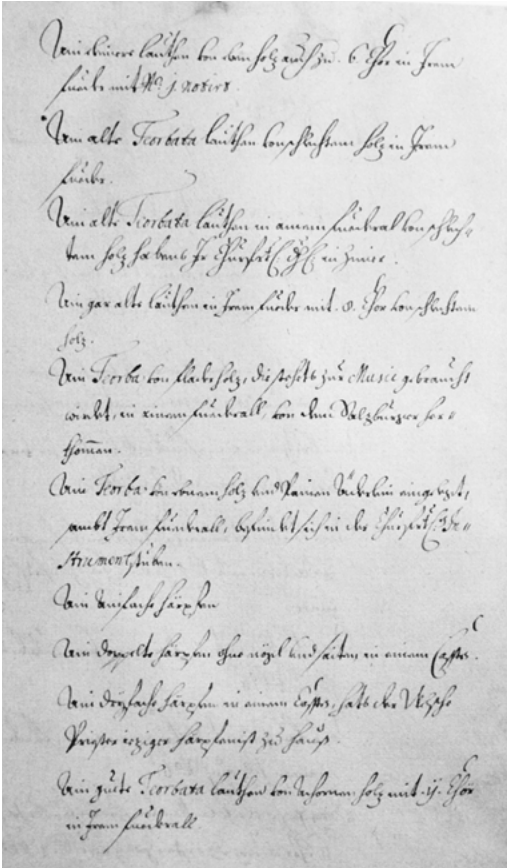 Ain clainere lauthen von dem holz auch zu . 6 . Chör in Irem
fuader mit N.o j. notiert .
Ain alte Teorbata lauthen von schlechtem holz in Irem
fuader.
Ain alte Tiorbata lauthen in ainem fuederal von schlech=
tem holz habens Ir Churfrt: in Zimer .
Ain gar alte lauthen in Irem fuader mit . 8 . Chör von schlechtem
holz .
Ain Teorba von fladerholz, die stets zur Music gebraucht
wirdet, in ainem fuederall, von dem Salzburger her=
khomen.
Ain Teorba von holz und Painen eingelegt,
sambt Irem fuederall, befindet sich in der Churfrt: In=
strument stuben.
Ain Ainfache härpfen
Ain doppelte härpfen ohne negel und saiten in ainem Casten .
Ain dreyfache härpfen in ainem Casten, hats der Welsche
Priester ieziger härpfenist zu hauß .
Ain guete Teorbata lauthen von holz mit . 11 . Chör
in Irem fuederall.